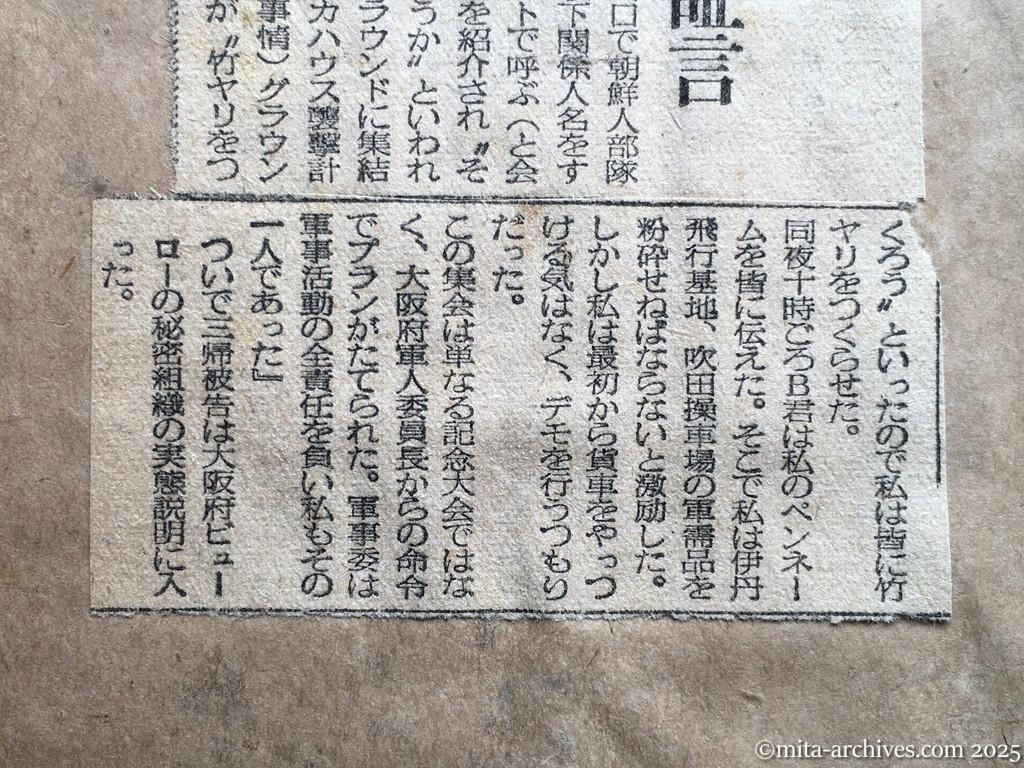 証言
口で朝鮮人部隊
下関係人名をす
トで呼ぶ(と会
を紹介され〝そ
うか〟といわれ
ラウンドに集結
カハウス襲撃計
事情)グラウン
が〝竹ヤリをつ
くろう〟といったので私は皆に竹
ヤリをつくらせた。
同夜十時ごろB君は私のペンネー
ムを皆に伝えた。そこで私は伊丹
飛行基地、吹田操車場の軍需品を
粉砕せねばならないと激励した。
しかし私は最初から貨車をやっつ
ける気はなく、デモを行うつもり
だった。
この集会は単なる記念大会ではな
く、大阪府軍人委員長からの命令
でプランがたてられた。軍事委は
軍事活動の全責任を負い私もその
一人であった』
ついで三帰被告は大阪府ビュー
ローの秘密組織の実態説明に入
った。
©mita-archives.com 2025